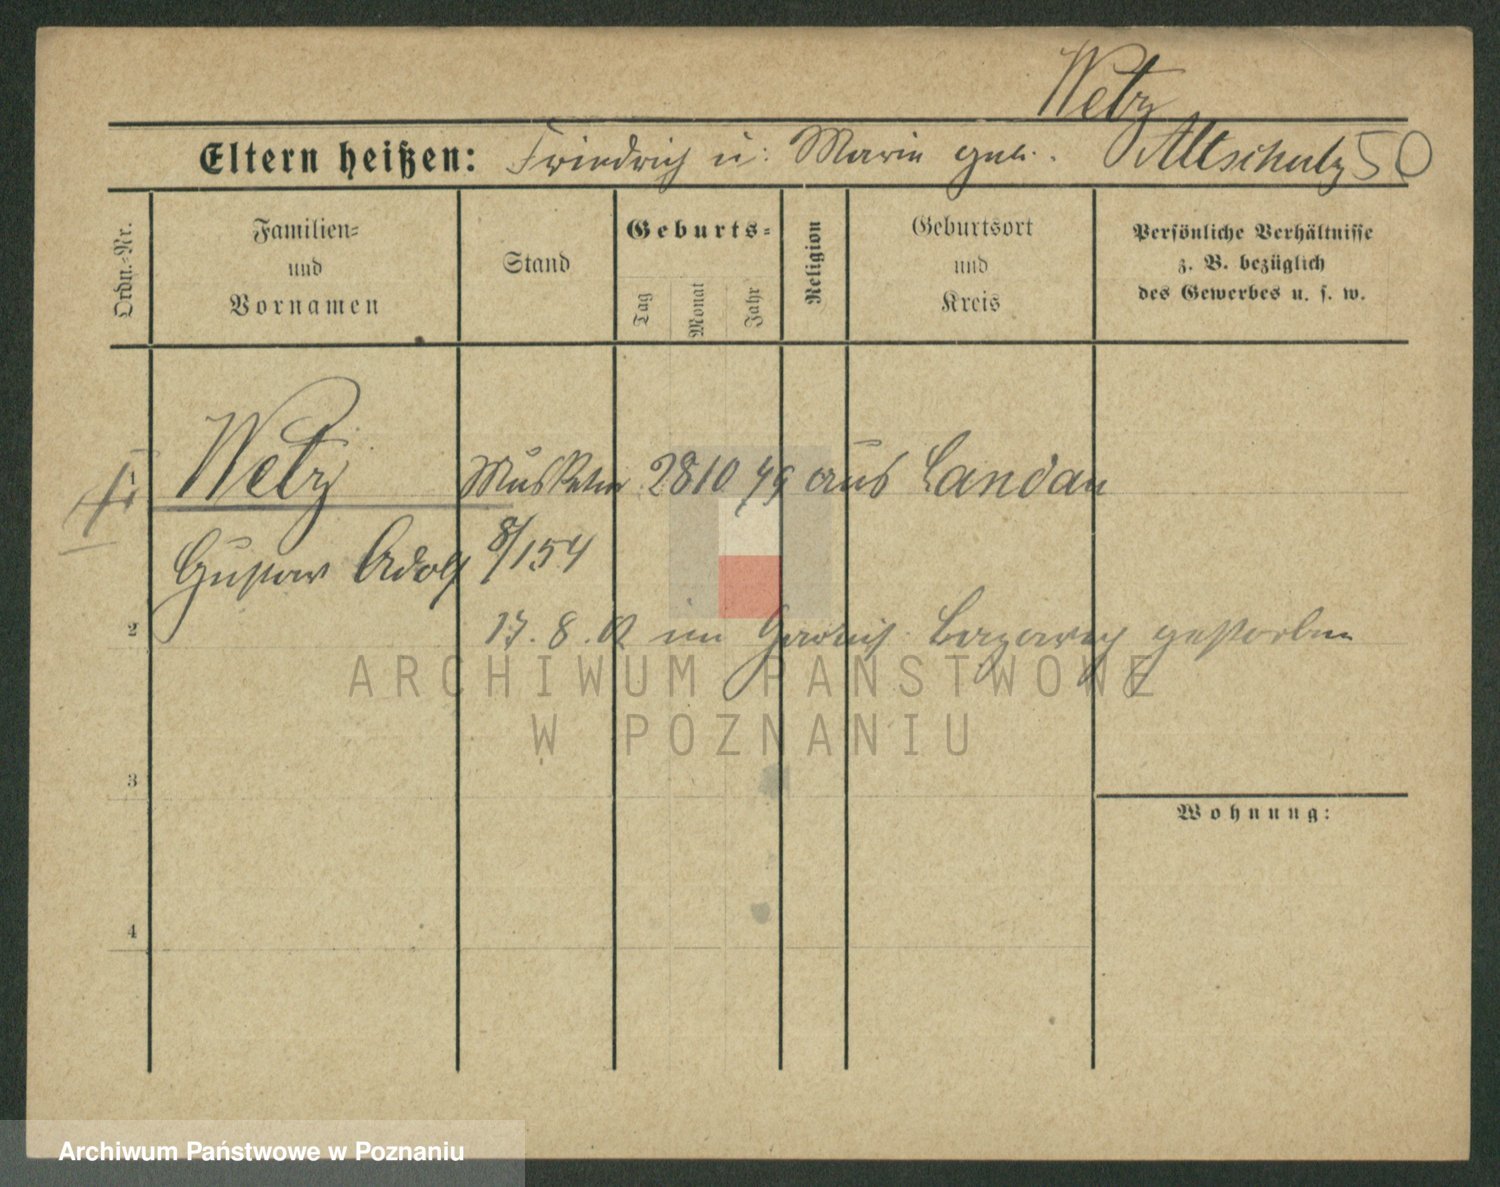 Wetz
Eltern heißen: Friedrich u: Marie geb. Altschulz 50
Ordn.-Nr.
Familien-
und
Vornamen
Stand
Geburts-
Tag
Monat
Jahr
Religion
Geburtsort
und
Kreis
Persönliche Verhältnisse
z. B. bezüglich
des Gewerbes u. s. w.
Wetz Musketier 28 10 79 aus Landau
Gustav Adolf 8/154
2
17. 8. 02 im Garnis. Lazareth gestorben
ARCHIWUM PAŃSTWOWE
W POZNANIU
3
Wohnung:
4
Archiwum Państwowe w Poznaniu